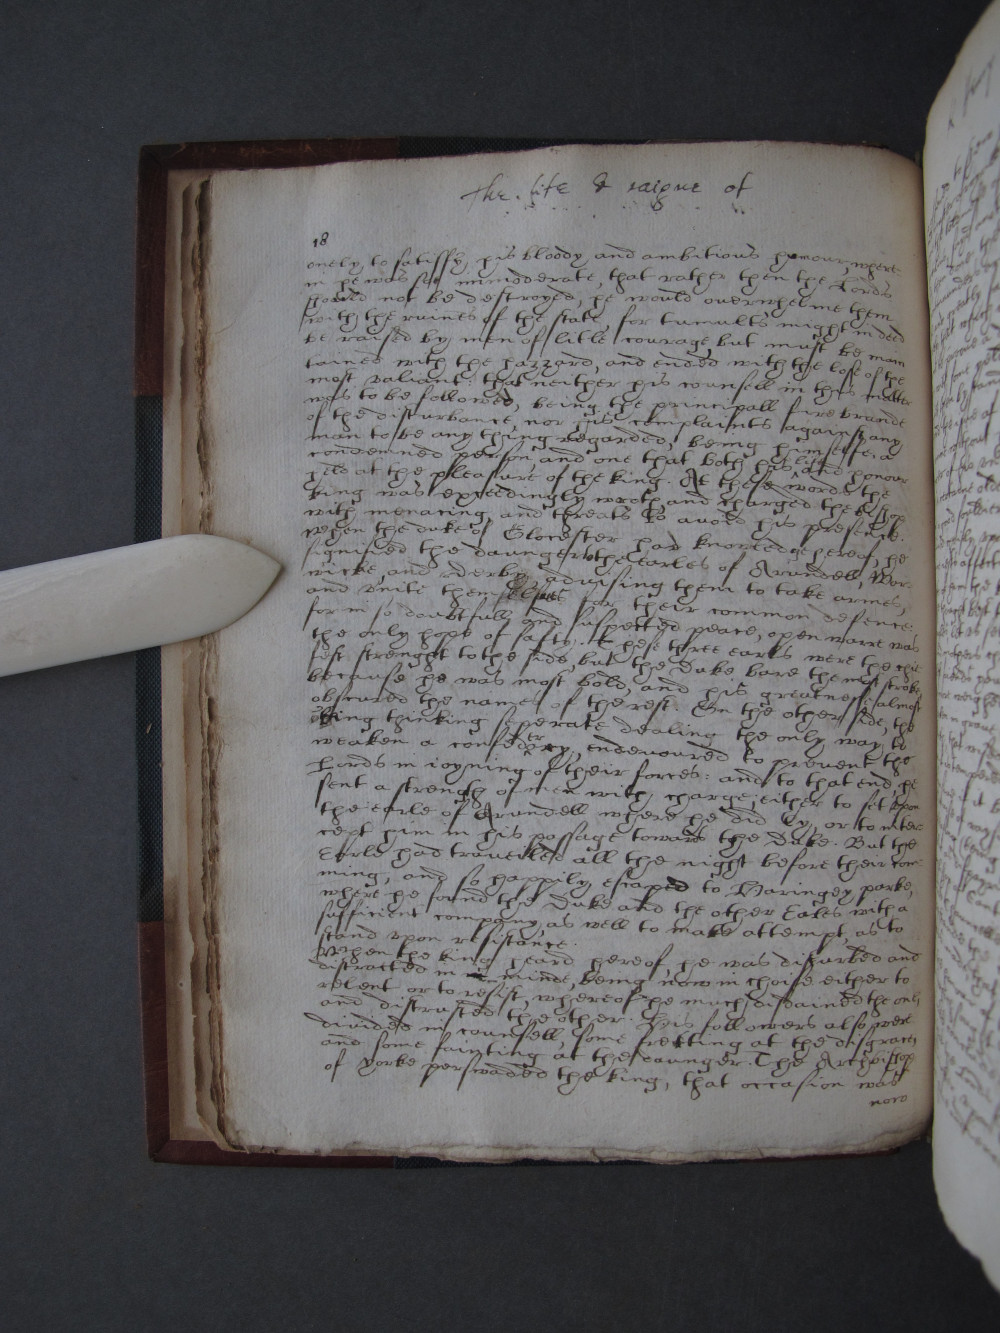 The life & raigne of
18
onely to satissfy his bloody and ambitious humour, where
in he was soe immoderate, that rather then the Lords
should not be destroyed, he would overwhelme them
with the ruines of the state, for tumults might indeed
be raised by men of litle courage but must be main
tained with the hazzard, and ended with the lose of the
most valiant: that neither his counsell in this matter
was to be followed, being the principall fire brande
of the disturbance, nor his complaints against any
man to be any thing regarded, being himselfe, a
condemned person and one that both his life and honour
held at the pleasure of the king. At these words the
king was exceedingly wroth, and charged the Bishop
with menacing and threats to avoid his presence.
When the duke of Glocester had knowledge hereof, he
signified the daunger to the earles of Arundell, War
wicke, and derby, advising them to take armes,
and vnite themselves for their common defence:
for in so doubtfull and suspected peace, open warre was
the only hope of safty. These three earles were the chie
fest strenght to the side, but the Duke bare the most stroke
because he was most bold, and his greatnesse almost
obscured the names of the rest. On the other side, the
king thinking seperate dealing the only way to
weaken a confedercy, endevoured to prevent the
Lords in ioyning of their forces: and to that end, he
sent a strength of men with charge, either to set vpon
the earle of Arundell where he did ly, or to inter
cept him in his passage towards the Duke. But the
Earle had travelled all the night before their com
ming, and so happily escaped to Haringey parke,
where he found the Duke and the other Earles with a
sufficient company, as well to make attempt, as to
stand vpon resistance.
When the king heard hereof, he was disturbed and
distracted in minde, being now in choise either to
relent or to resist, whereof he much disdained the one,
and distrusted the other. His followers also were
divided in counsell, some fretting at the disgrace,
and some fainting at the daunger. The Archbishop
of Yorke perswaded the king, that occasion was
now